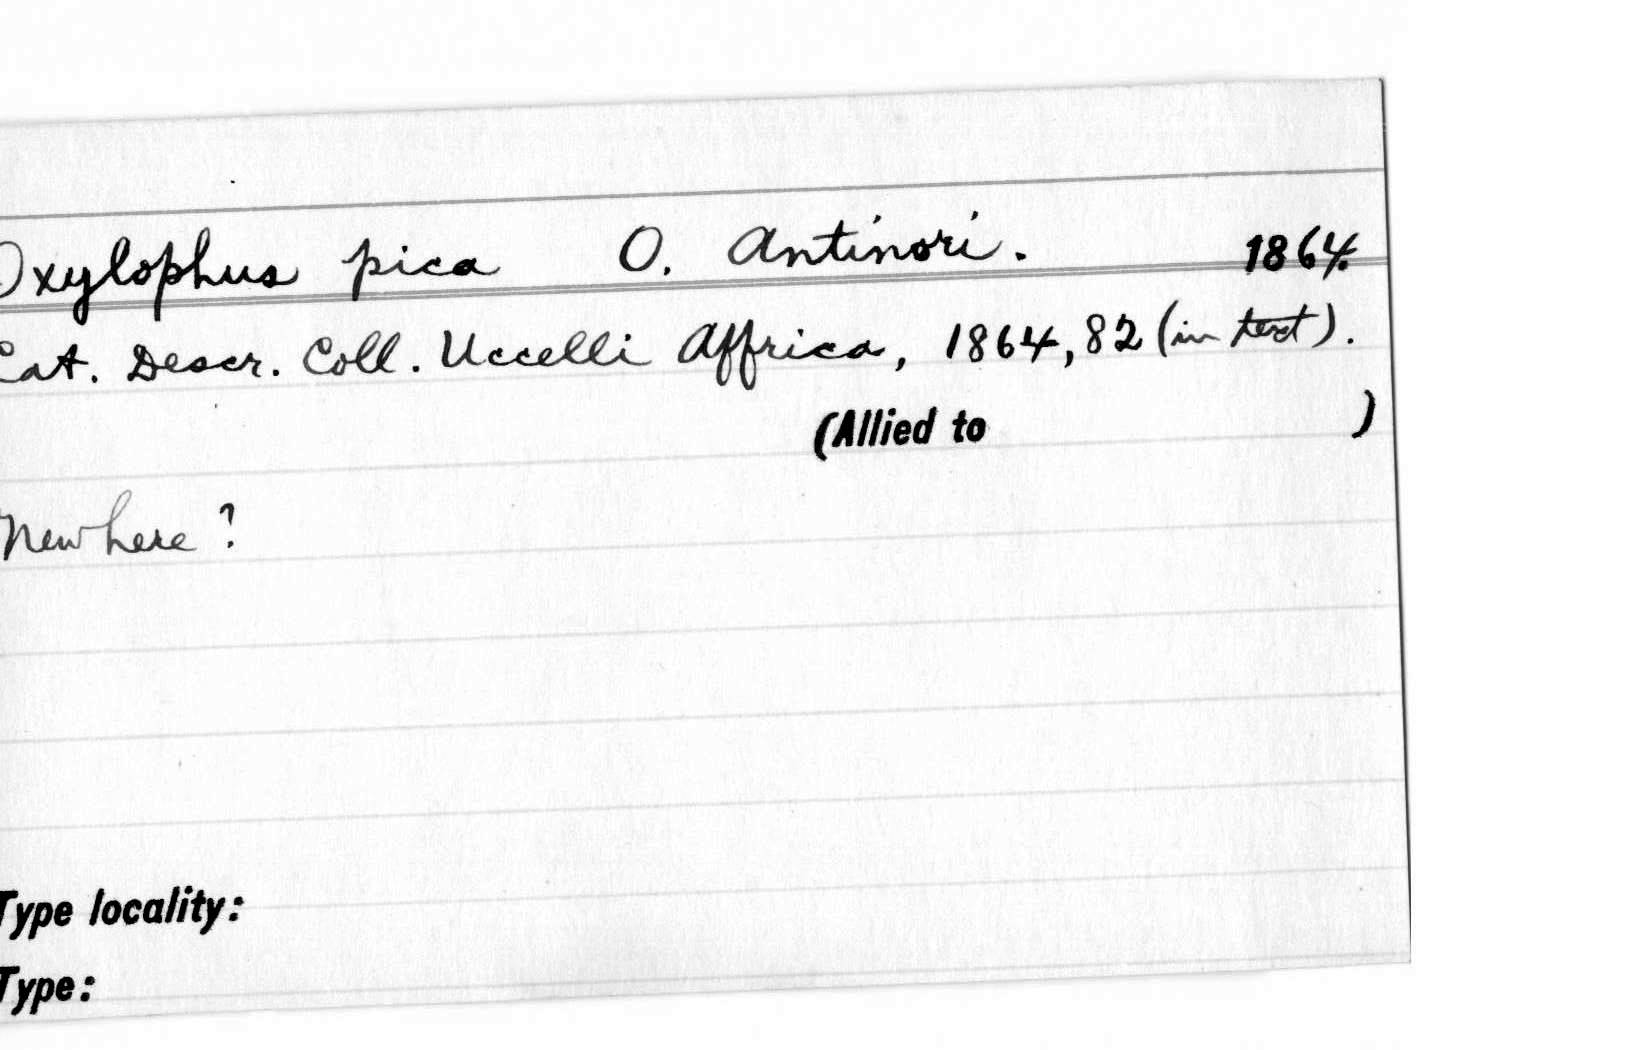 Oxylophus pica O. Antinori. 1864.
Cat. Descr. Coll. Uccelli Affrica, 1864, 82 (in text).
(Allied to )
New here?
Type locality:
Type: